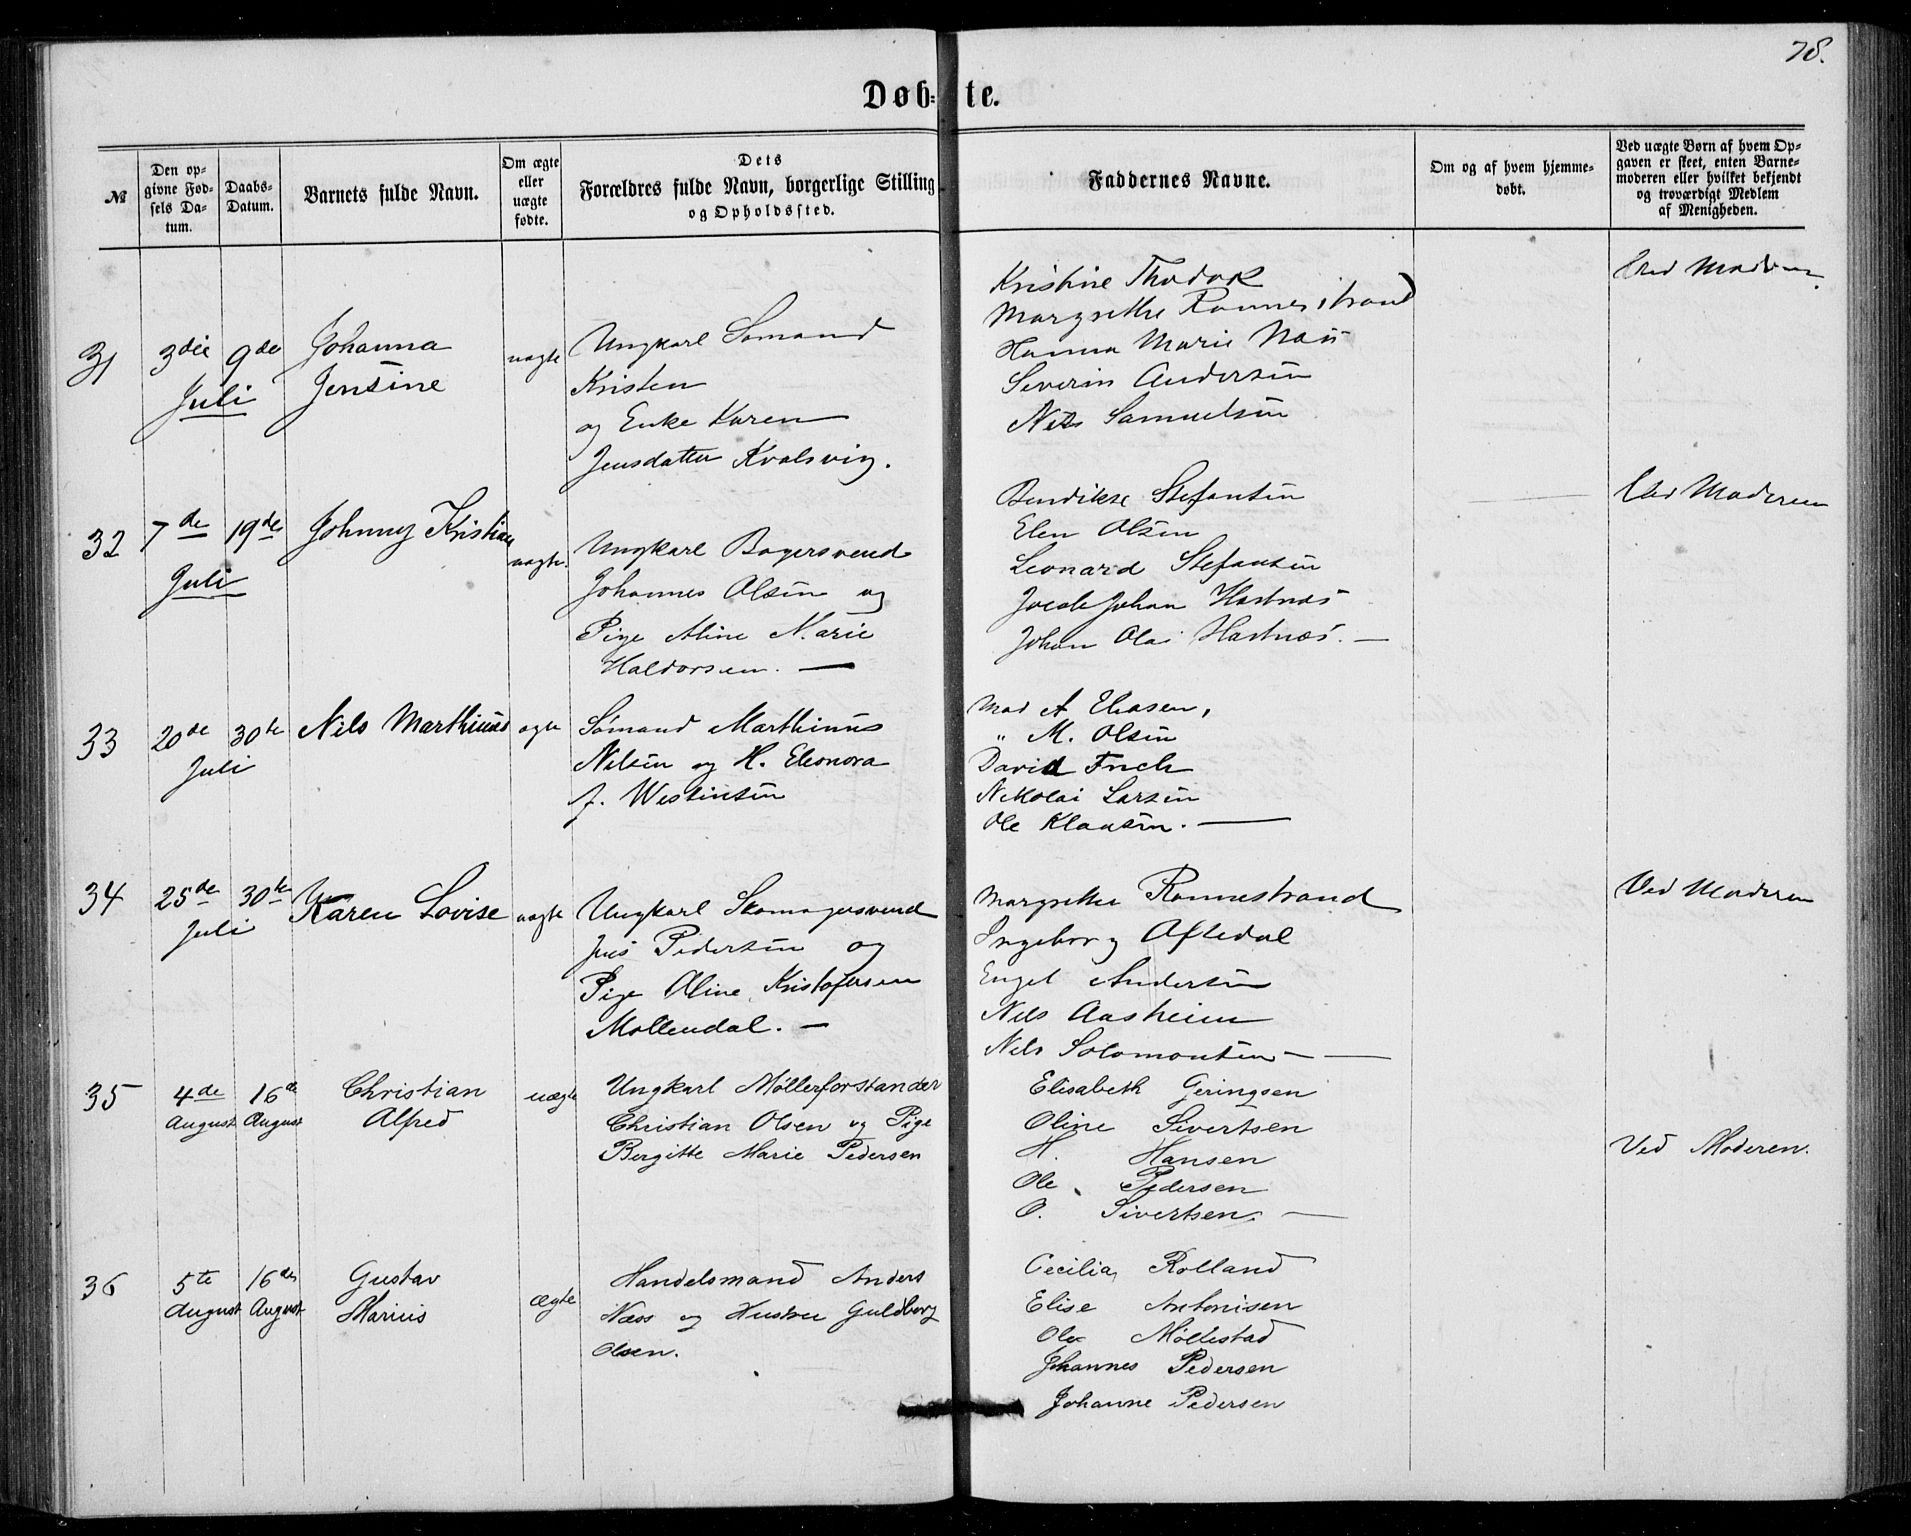 78.
Døb= te.
№
Den op-
givne Fød-
sels Da-
tum.
Daabs-
Datum.
Barnets fulde Navn.
Om ægte
eller
uægte
fødte.
Dets
Forældres fulde Navn, borgerlige Stilling
og Opholdssted.
Faddernes Navne.
Om og af hvem hjemme-
døbt.
Ved uægte Børn af hvem Op-
gaven er skeet, enten Barne-
moderen eller hvilket bekjendt
og troværdigt Medlem
af Menigheden.
31
3die
Juli
9de
Johanna
Jensine
uægte
Ungkarl Sømand
Kristen
og Enke Karen
Jensdatter Kvalsvig.
Kristine
Margrethe Rønnestrand
Hanna Marie Næss
Severin Andersen
Nils Samuelsen
Ved Moderen
32
7de
Juli
19de
Johnny Kristian
uægte.
Ungkarl Bagersvend
Johannes Olsen og
Pige Aline Marie
Haldorsen. —
Bendikte Stefansen
Elen Olsen
Leonard Stefansen
Jacob Johan
Johan Olai
Ved Moderen
33
20de
Juli
30te
Nils Marthinus
ægte
Sømand Marthinus
Nilsen og H. Eleonora
f.
Mad A Eliasen,
" M. Olsen
David
Nikolai Larsen
Ole Klausen. —
34
25de
Juli
30te
Karen Lovise
uægte
Ungkarl Skomagersvend
Jens Pedersen og
Pige Oline Kristofersen
Møllendal. —
Margrethe Rønnestrand
Ingeborg Aftedal
Engel Andersen
Nils Aasheim
Nils Solomonsen —
Ved Moderen
35
4de
August
16de
August
Christian
Alfred
uægte
Ungkarl Møllerforstander
Christian Olsen og Pige
Bergitte Marie Pedersen
Elisabeth Geringsen
Oline Sivertsen
H. Hansen
Ole Pedersen
O. Sivertsen. —
Ved Moderen.
36
5te
August
16de
August
Gustav
Marius
ægte
Handelsmand Anders
Næss og Hustru Guldborg
Olsen.
Cecilia Rolland
Elise Antonisen
Ole Møllestad
Johannes Pedersen
Johanne Pedersen